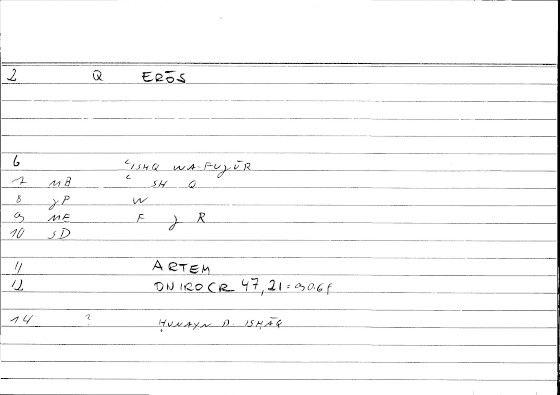 2 Q ERŌS
6 ʿISHQ WA-FUJŪR
7 MB ʿ SH Q
8 JP W
9 ME F J R
10 SD
11 ARTEM
12 ONIROCR 47,21 =
14 ? ḤUNAYN B. ISḤĀQ